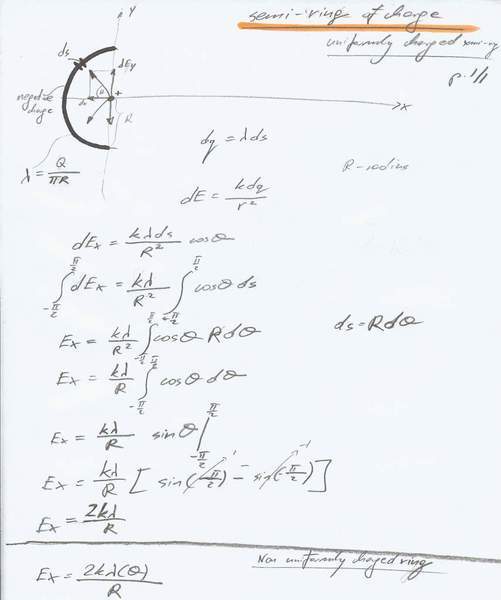 semi-ring of charge
uniformly charged semi-ring
p. 1/1
Y
ds
dEy
θ
+
negative charge
R
x
λ = Q/πR
dq = λds
R - radius
dE = kdq/r²
dEx = kλds/R² cosθ
∫_{-π/2}^{π/2} dEx = kλ/R² ∫_{-π/2}^{π/2} cosθ ds
Ex = kλ/R² ∫_{-π/2}^{π/2} cosθ Rdθ
ds = Rdθ
Ex = kλ/R ∫_{-π/2}^{π/2} cosθ dθ
Ex = kλ/R sinθ |_{-π/2}^{π/2}
Ex = kλ/R [ sin(π/2) 1 - sin(-π/2) -1 ]
Ex = 2kλ/R
Non uniformly charged ring
Ex = 2kλ(θ)/R